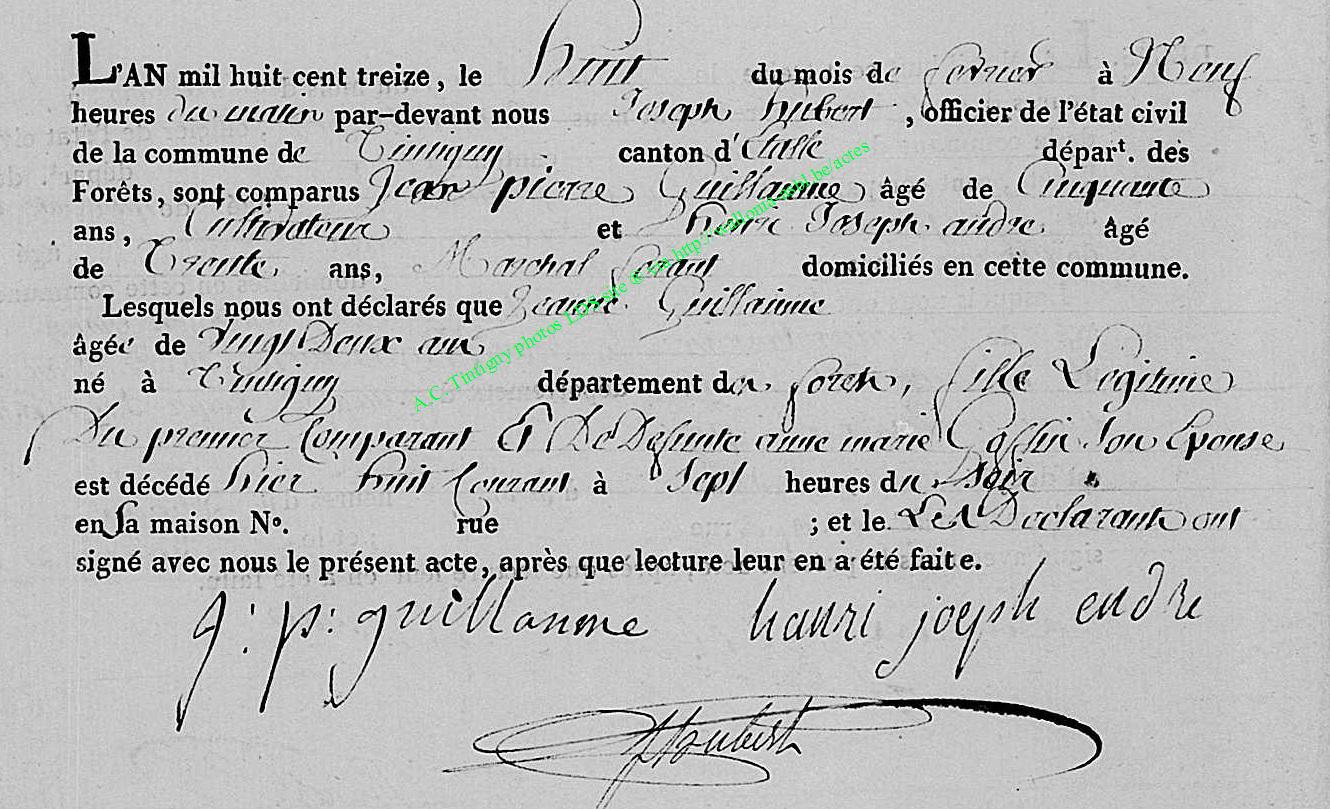 L'AN mil huit cent treize, le huit du mois de fevrier à Neuf
heures du matin par-devant nous Joseph hubert, officier de l'état civil
de la commune de Tintigny canton d'Etalle départ. des
Forêts, sont comparus Jean pierre Guillaume âgé de Cinquante
ans, Cultivateur et henri Joseph andre âgé
de Trente ans, Marchal ferant domiciliés en cette commune.
Lesquels nous ont déclarés que Jeanne Guillaume
âgée de Vingt Deux ans
né à Tintigny département des forets, fille Legitime
Du premier Comparant Et De Defunte anne marie Goffin Son Epouse
est décédé hier huit Courant à Sept heures du Soir
en sa maison No. rue ; et le Les Declarants ont
signé avec nous le présent acte, après que lecture leur en a été faite.
j: p: guillaume hanri joseph endre
Hubert
A.C. Tintigny photos LDS site @ via http://wallonia-asbl.be/actes